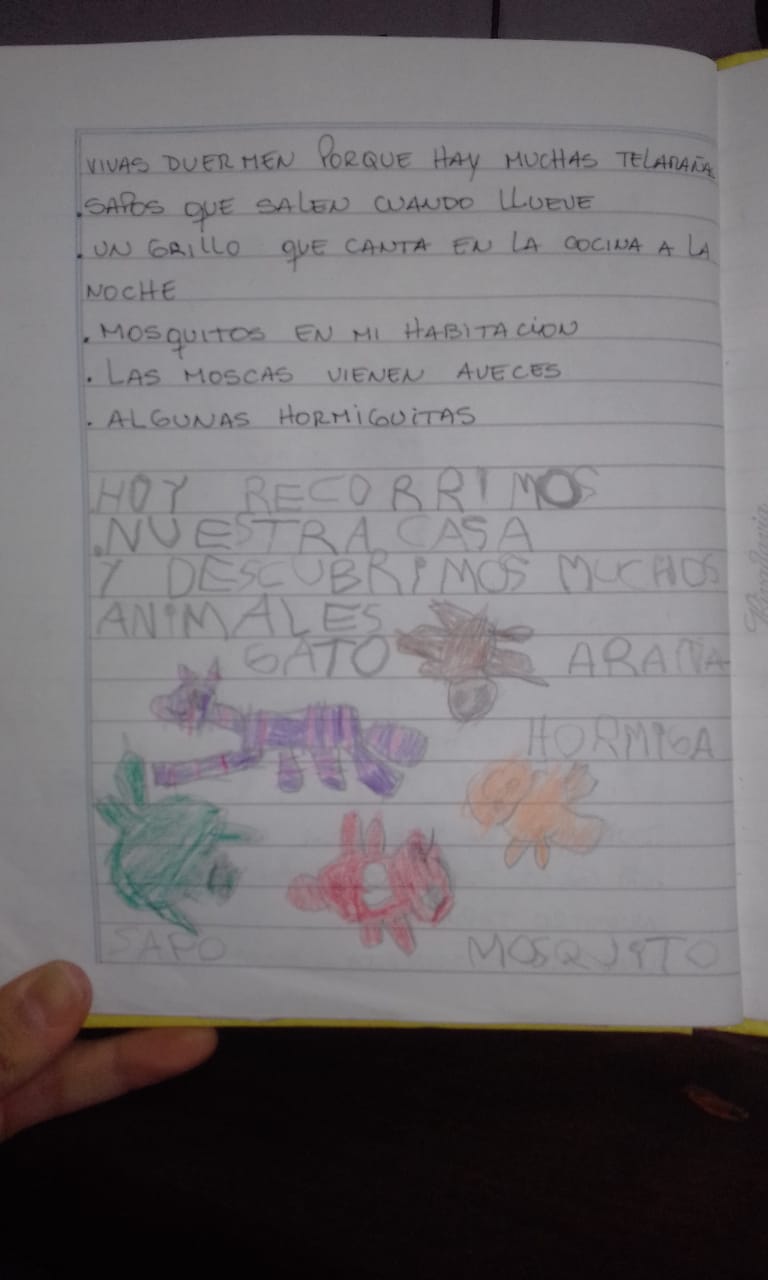 VIVAS DUERMEN PORQUE HAY MUCHAS TELARAÑA
.SAPOS QUE SALEN CUANDO LLUEVE
.UN GRILLO QUE CANTA EN LA COCINA A LA
NOCHE
.MOSQUITOS EN MI HABITACION
.LAS MOSCAS VIENEN AVECES
.ALGUNAS HORMIGUITAS
HOY RECORRIMOS
.NUESTRA CASA
Y DESCUBRIMOS MUCHOS
ANIMALES
GATO ARAÑA
HORMIGA
SAPO MOSQUITO